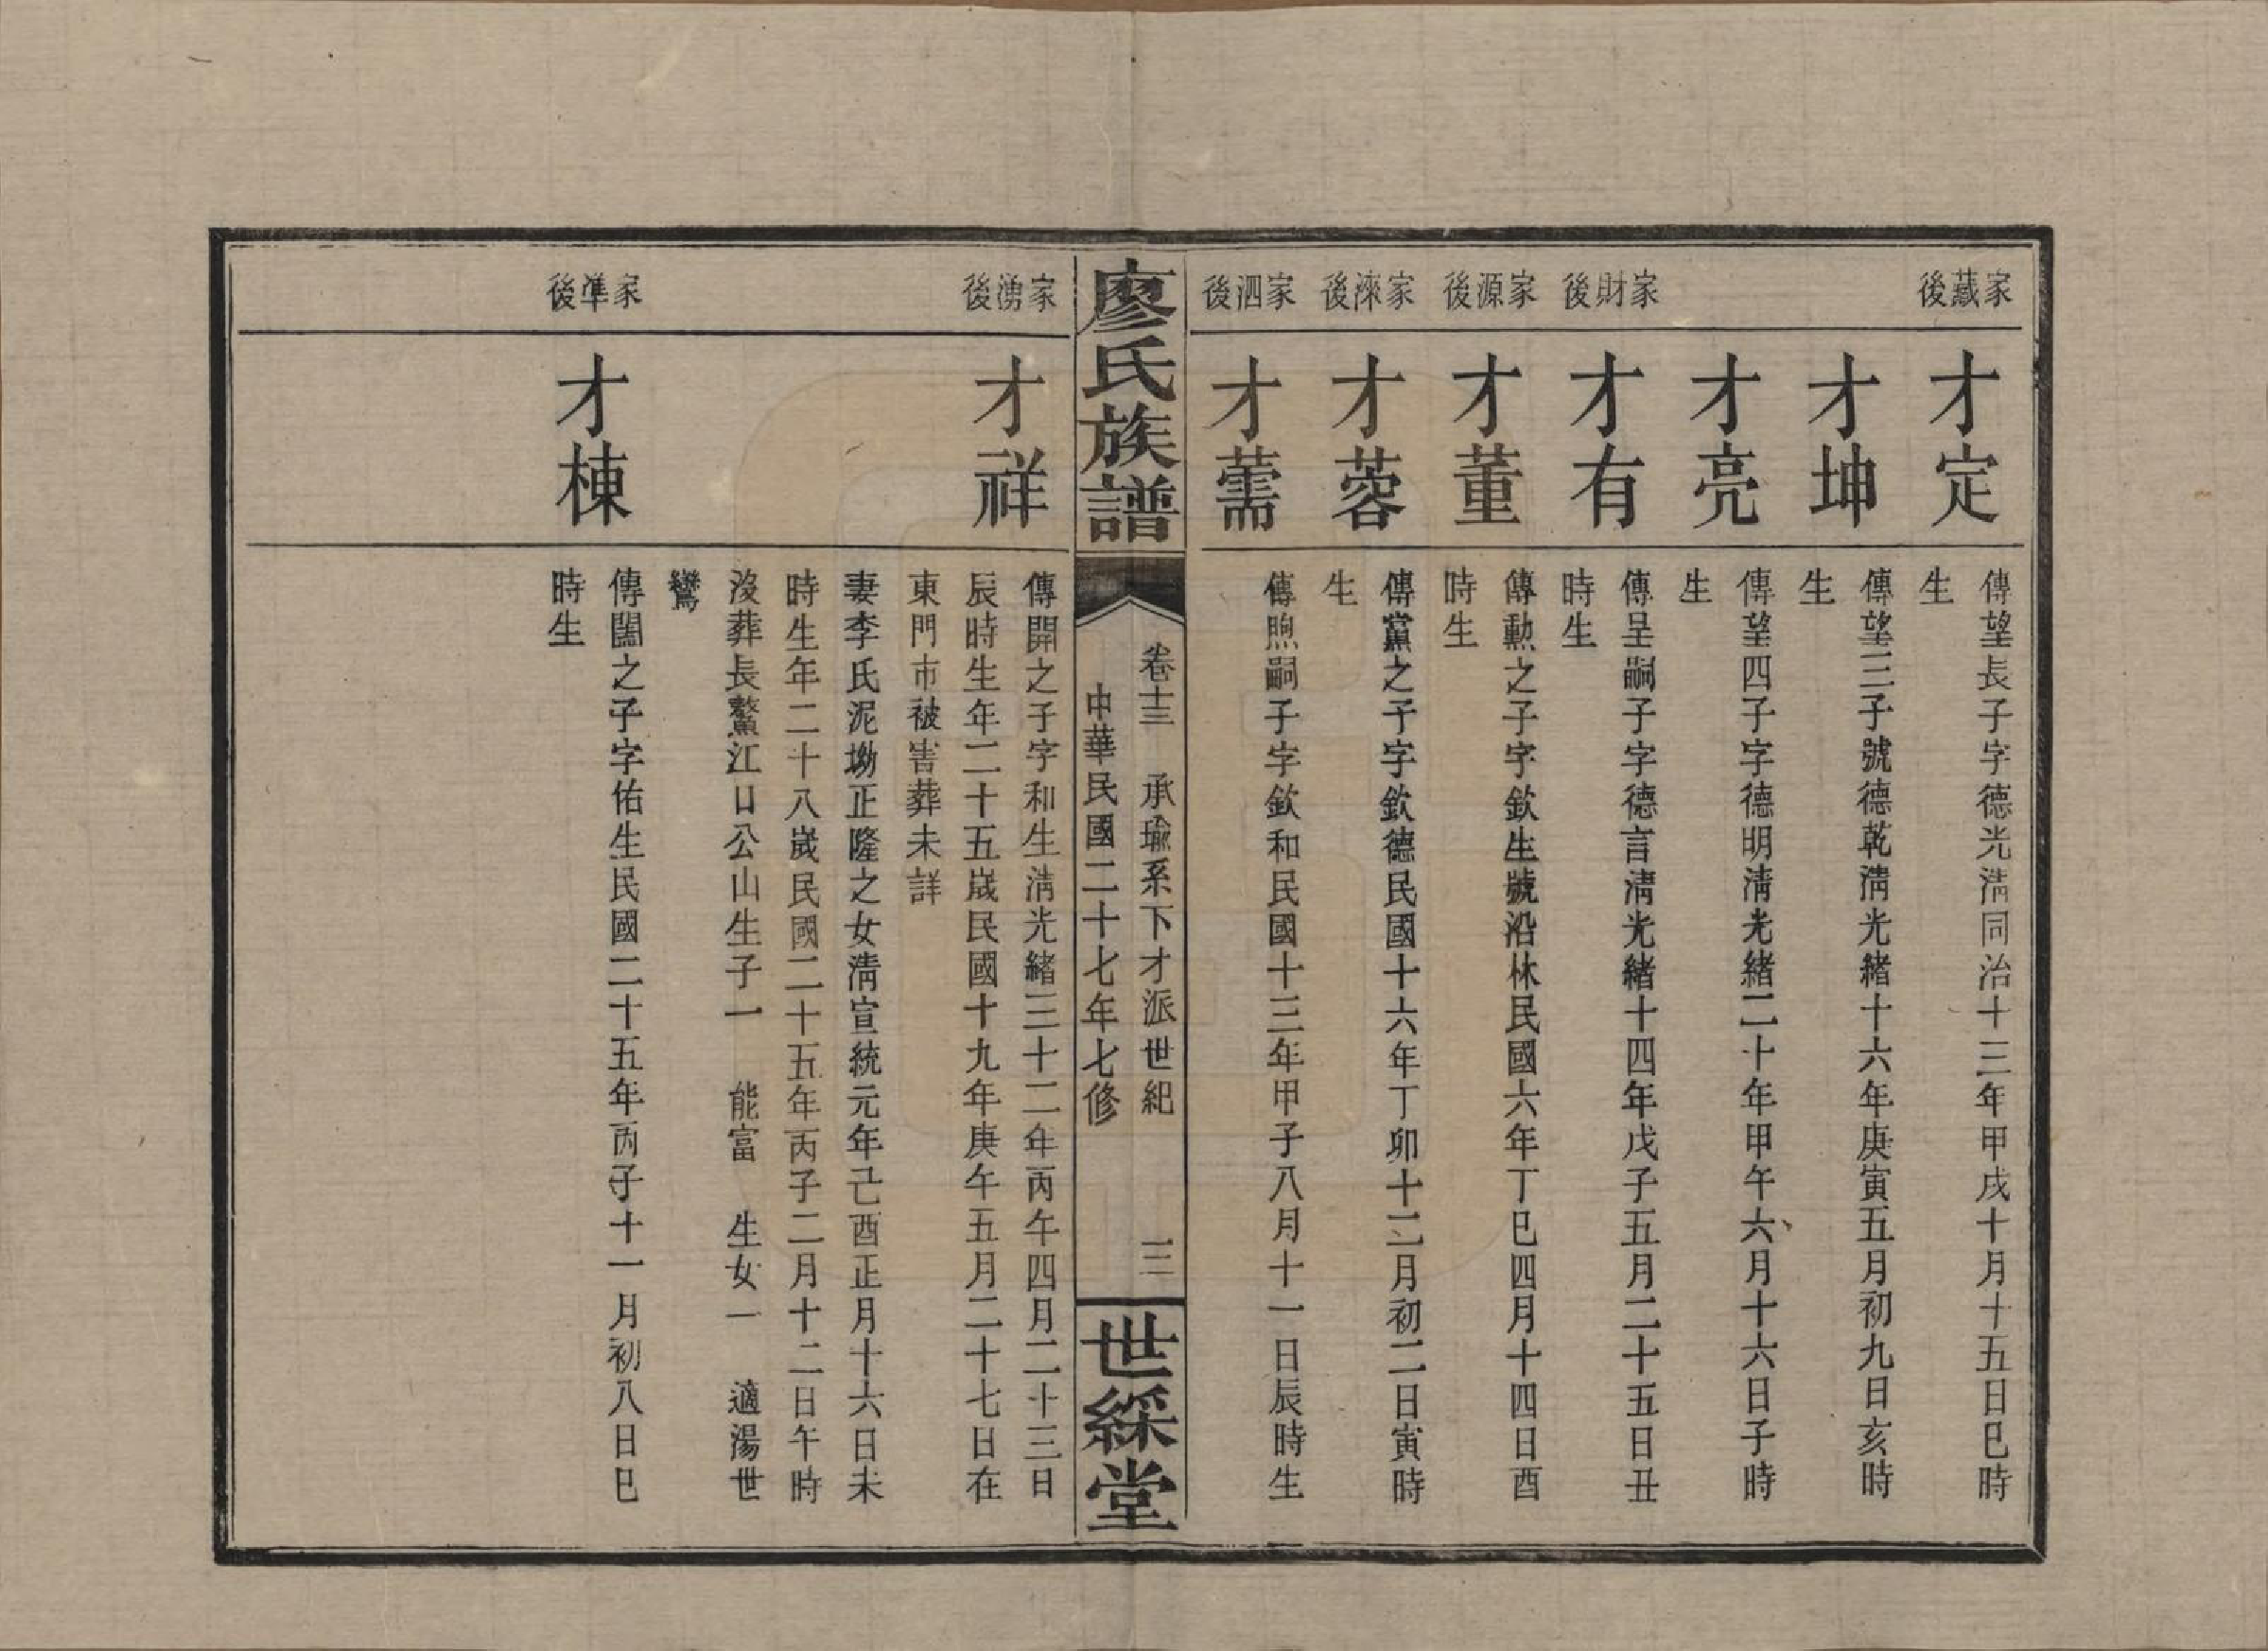 家藏後
才定
傳望長子字德光清同治十三年甲戌十月十五日巳時
生
才坤
傳望三子號德乾清光緒十六年庚寅五月初九日亥時
生
才亮
傳望四子字德明清光緒二十年甲午六月十六日子時
生
家財後
才有
傳呈嗣子字德言清光緒十四年戊子五月二十五日丑
時生
家源後
才董
傳勳之子字欽生號沿林民國六年丁巳四月十四日酉
時生
家淶後
才蓉
傳黨之子字欽德民國十六年丁卯十二月初二日寅時
生
家泗後
才薷
傳煦嗣子字欽和民國十三年甲子八月十一日辰時生
廖氏族譜
卷十三 承瑜系下才派世紀 三
中華民國二十七年七修
世綵堂
家湧後
才祥
傳開之子字和生清光緒三十二年丙午四月二十三日
辰時生年二十五歲民國十九年庚午五月二十七日在
東門市被害葬未詳
妻李氏泥坳正隆之女清宣統元年己酉正月十六日未
時生年二十八歲民國二十五年丙子二月十二日午時
沒葬長鰲江口公山生子一 能富 生女一 適湯世
鸞
家準後
才棟
傳闓之子字佑生民國二十五年丙子十一月初八日巳
時生